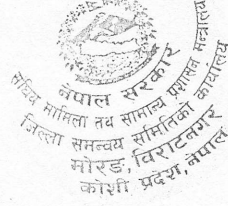 नेपाल सरकार
सङ्घिय मामिला तथ सामान्य प्रशासन मन्त्रालय
जिल्ला समन्वय समितिको कार्यालय
मोरङ, विराटनगर
कोशी प्रदेश, नेपाल